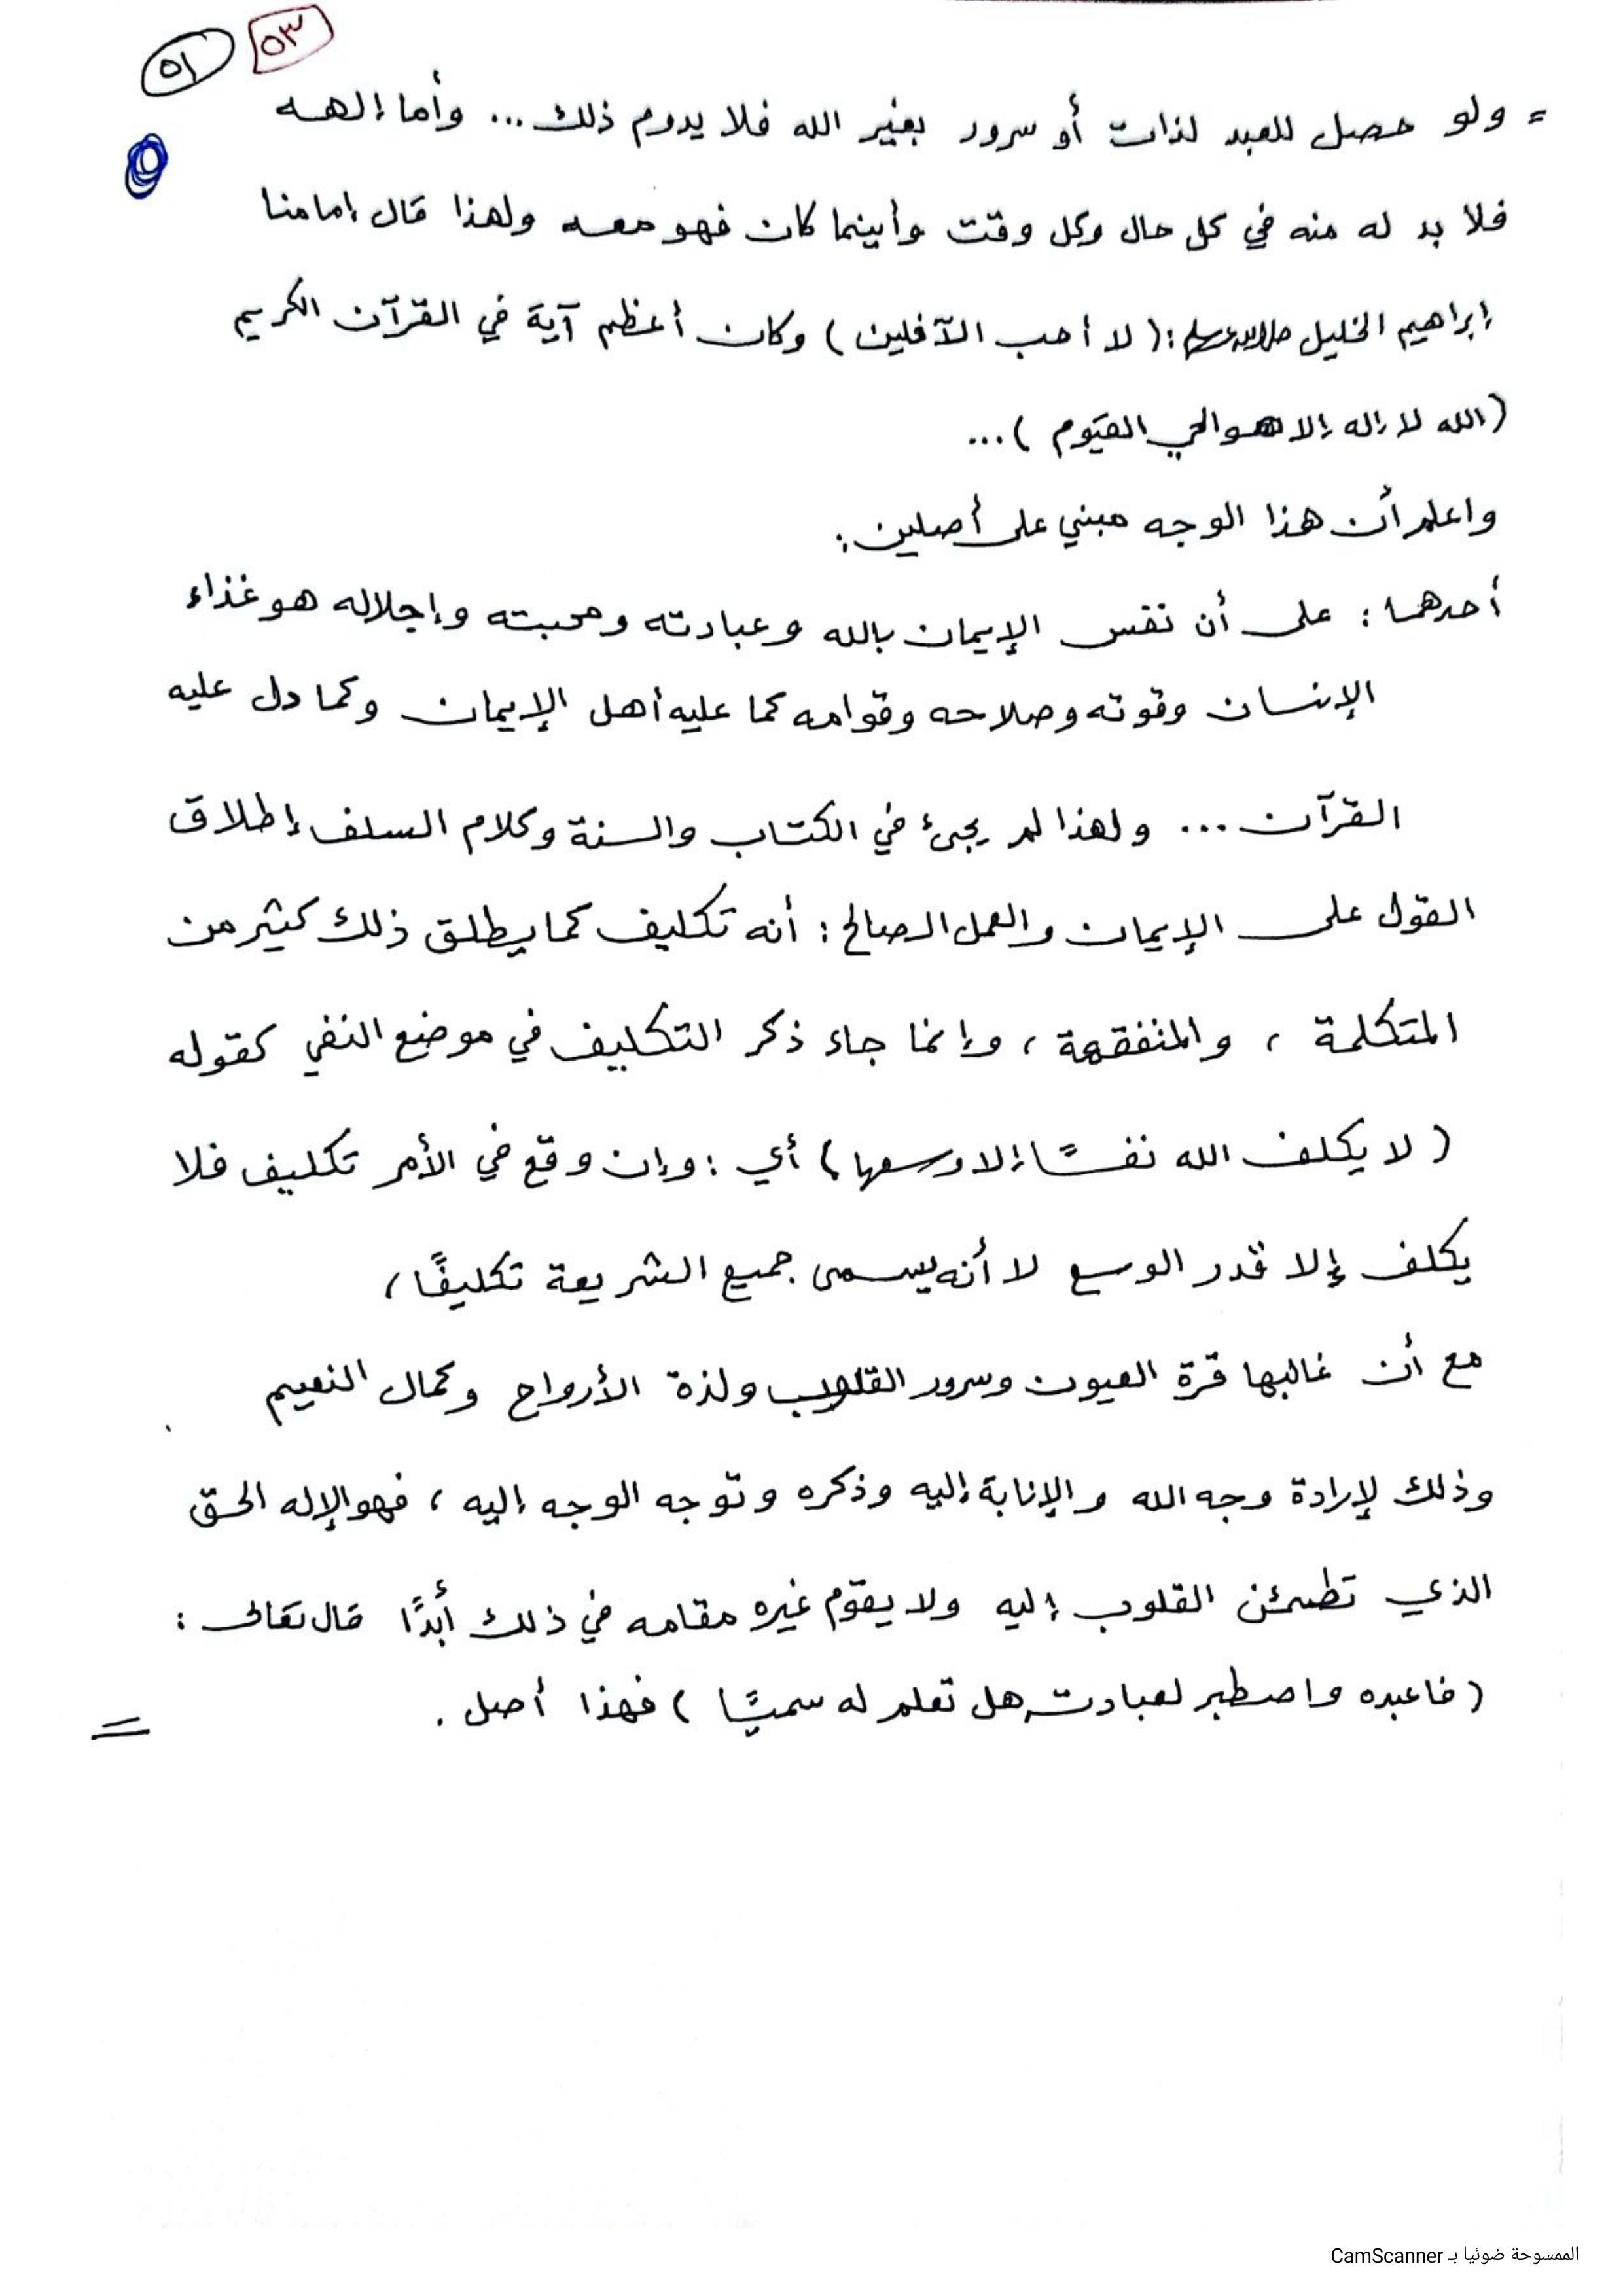 ٥١ ٥٣
= ولو حصل للعبد لذات أو سرور بغير الله فلا يدوم ذلك... وأما إلهه
فلا بد له منه في كل حال وكل وقت وأينما كان فهو معه ولهذا قال إمامنا
إبراهيم الخليل صلى الله عليه وسلم : ( لا أحب الآفلين ) وكان أعظم آية في القرآن الكريم
( الله لا إله إلا هو الحي القيوم ) ...
واعلم أن هذا الوجه مبني على أصلين :
أحدهما : على أن نفس الإيمان بالله وعبادته ومحبته وإجلاله هو غذاء
الإنسان وقوته وصلاحه وقوامه كما عليه أهل الإيمان وكما دل عليه
القرآن ... ولهذا لم يجئ في الكتاب والسنة وكلام السلف إطلاق
القول على الإيمان والعمل الصالح : أنه تكليف كما يطلق ذلك كثير من
المتكلمة ، والمتفقهة ، وإنما جاء ذكر التكليف في موضع النفي كقوله
( لا يكلف الله نفسًا إلا وسعها ) أي : وإن وقع في الأمر تكليف فلا
يكلف إلا قدر الوسع لا أنه يسمى جميع الشريعة تكليفًا ،
مع أن غالبها قرة العيون وسرور القلوب ولذة الأرواح وكمال النعيم
وذلك لإرادة وجه الله والإنابة إليه وذكره وتوجه الوجه إليه ، فهو الإله الحق
الذي تطمئن القلوب إليه ولا يقوم غيره مقامه في ذلك أبدًا قال تعالى :
( فاعبده واصطبر لعبادته هل تعلم له سميًّا ) فهذا أصل . =
الممسوحة ضوئيا بـ CamScanner